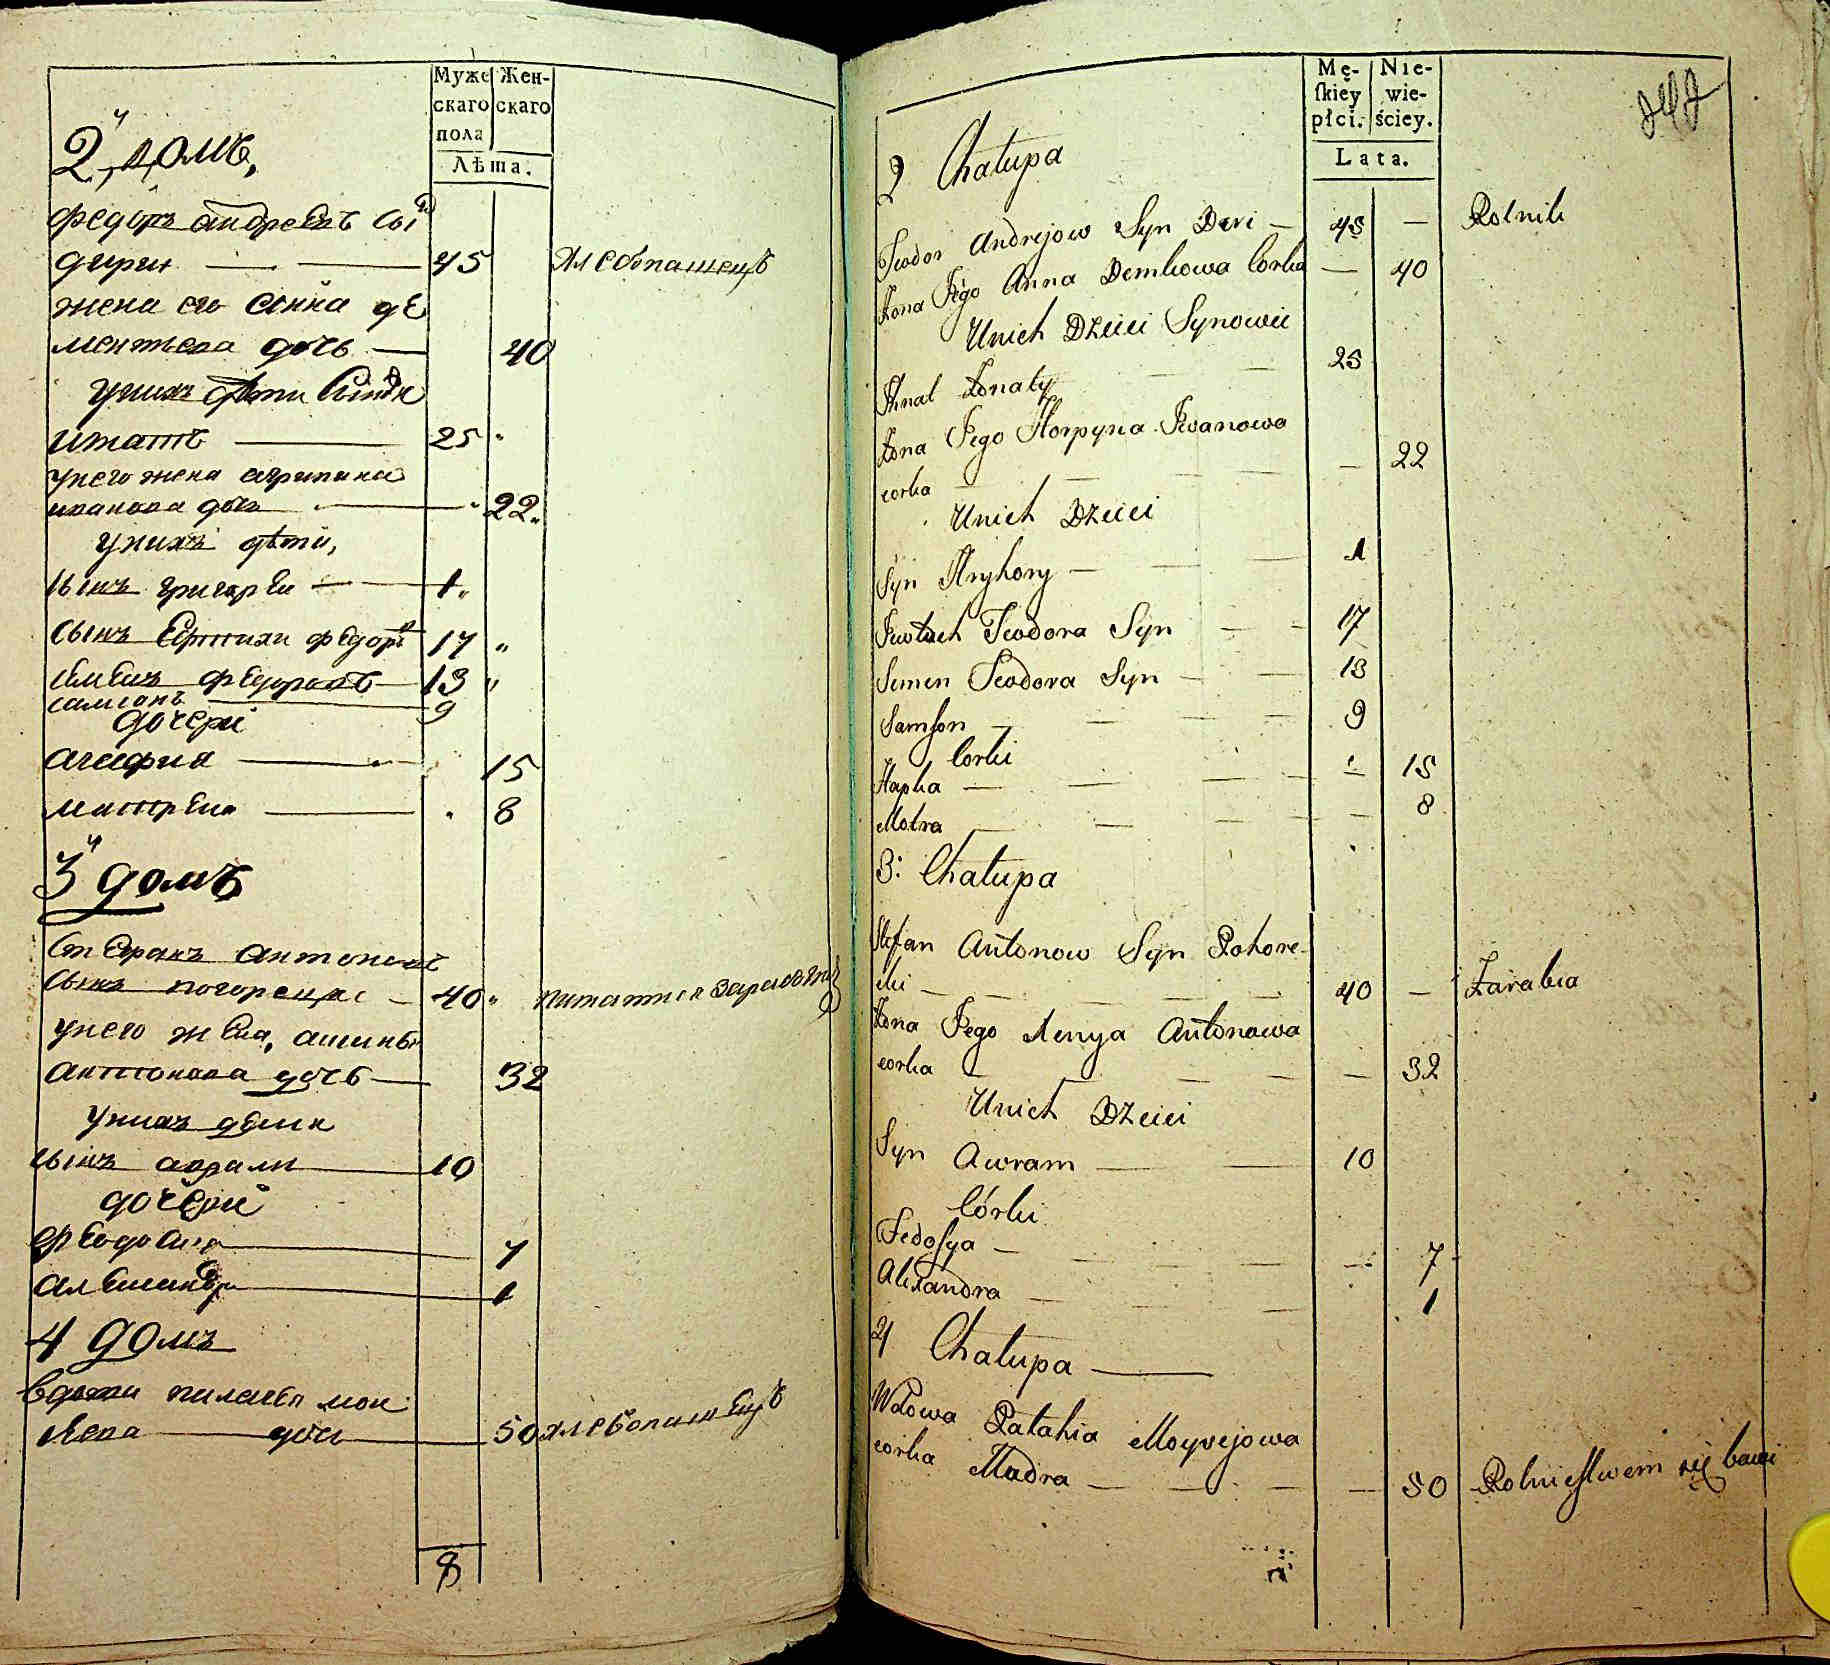 Муже
скаго
пола
Жен-
скаго
Лѣта.
2й домъ,
федоръ андреевъ сы
дерин — 45 хлебопашецъ
жена его анна де
ментьева дочь — 40
у нихъ дети
игнатъ — 25
у него жена агрипина
иванова дочь — 22
у нихъ дѣти,
сынъ григорей — 1
сынъ федоръ 17
семенъ федоровъ — 13
самсонъ — 9
дочери
агафия — 15
матрена — 8
3й домъ
стефанъ антоновъ
сынъ погорецки — 40
у него жена,
антонова дочь — 32
у нихъ дети
сынъ аврам — 10
дочери
феодосия — 7
александра — 1
4 домъ
вдова мои
сеева дочь — 50 хлебопашецъ
8
Mę-
ſkiey
płci.
Nie-
wie-
ściey.
Lata.
2 Chałupa
Teodor Andrejow Syn Deri — 45 — Rolnik
Żona Jego Anna Demkowa Corka — 40
Unich Dzieci Synowie
Ihnat Żonaty 25
Żona Jego Horpyna Iwanowa
corka — 22
Unich Dzieci
Syn Hryhory — 1
Teodora Syn — 17
Semen Teodora Syn — 13
Samſon — 9
Corki
Hapka — 15
Motra — 8
3: Chałupa
Stefan Antonow Syn Pohore-
cki — 40 — Zarabia
Żona Jego Xenya Antonowa
corka — 32
Unich Dzieci
Syn Awram — 10
Córki
Fedoſya — 7
Alexandra — 1
4 Chałupa —
Wdowa Patahia Moysejowa
corka Madra — 50 Rolnictwem się bawi